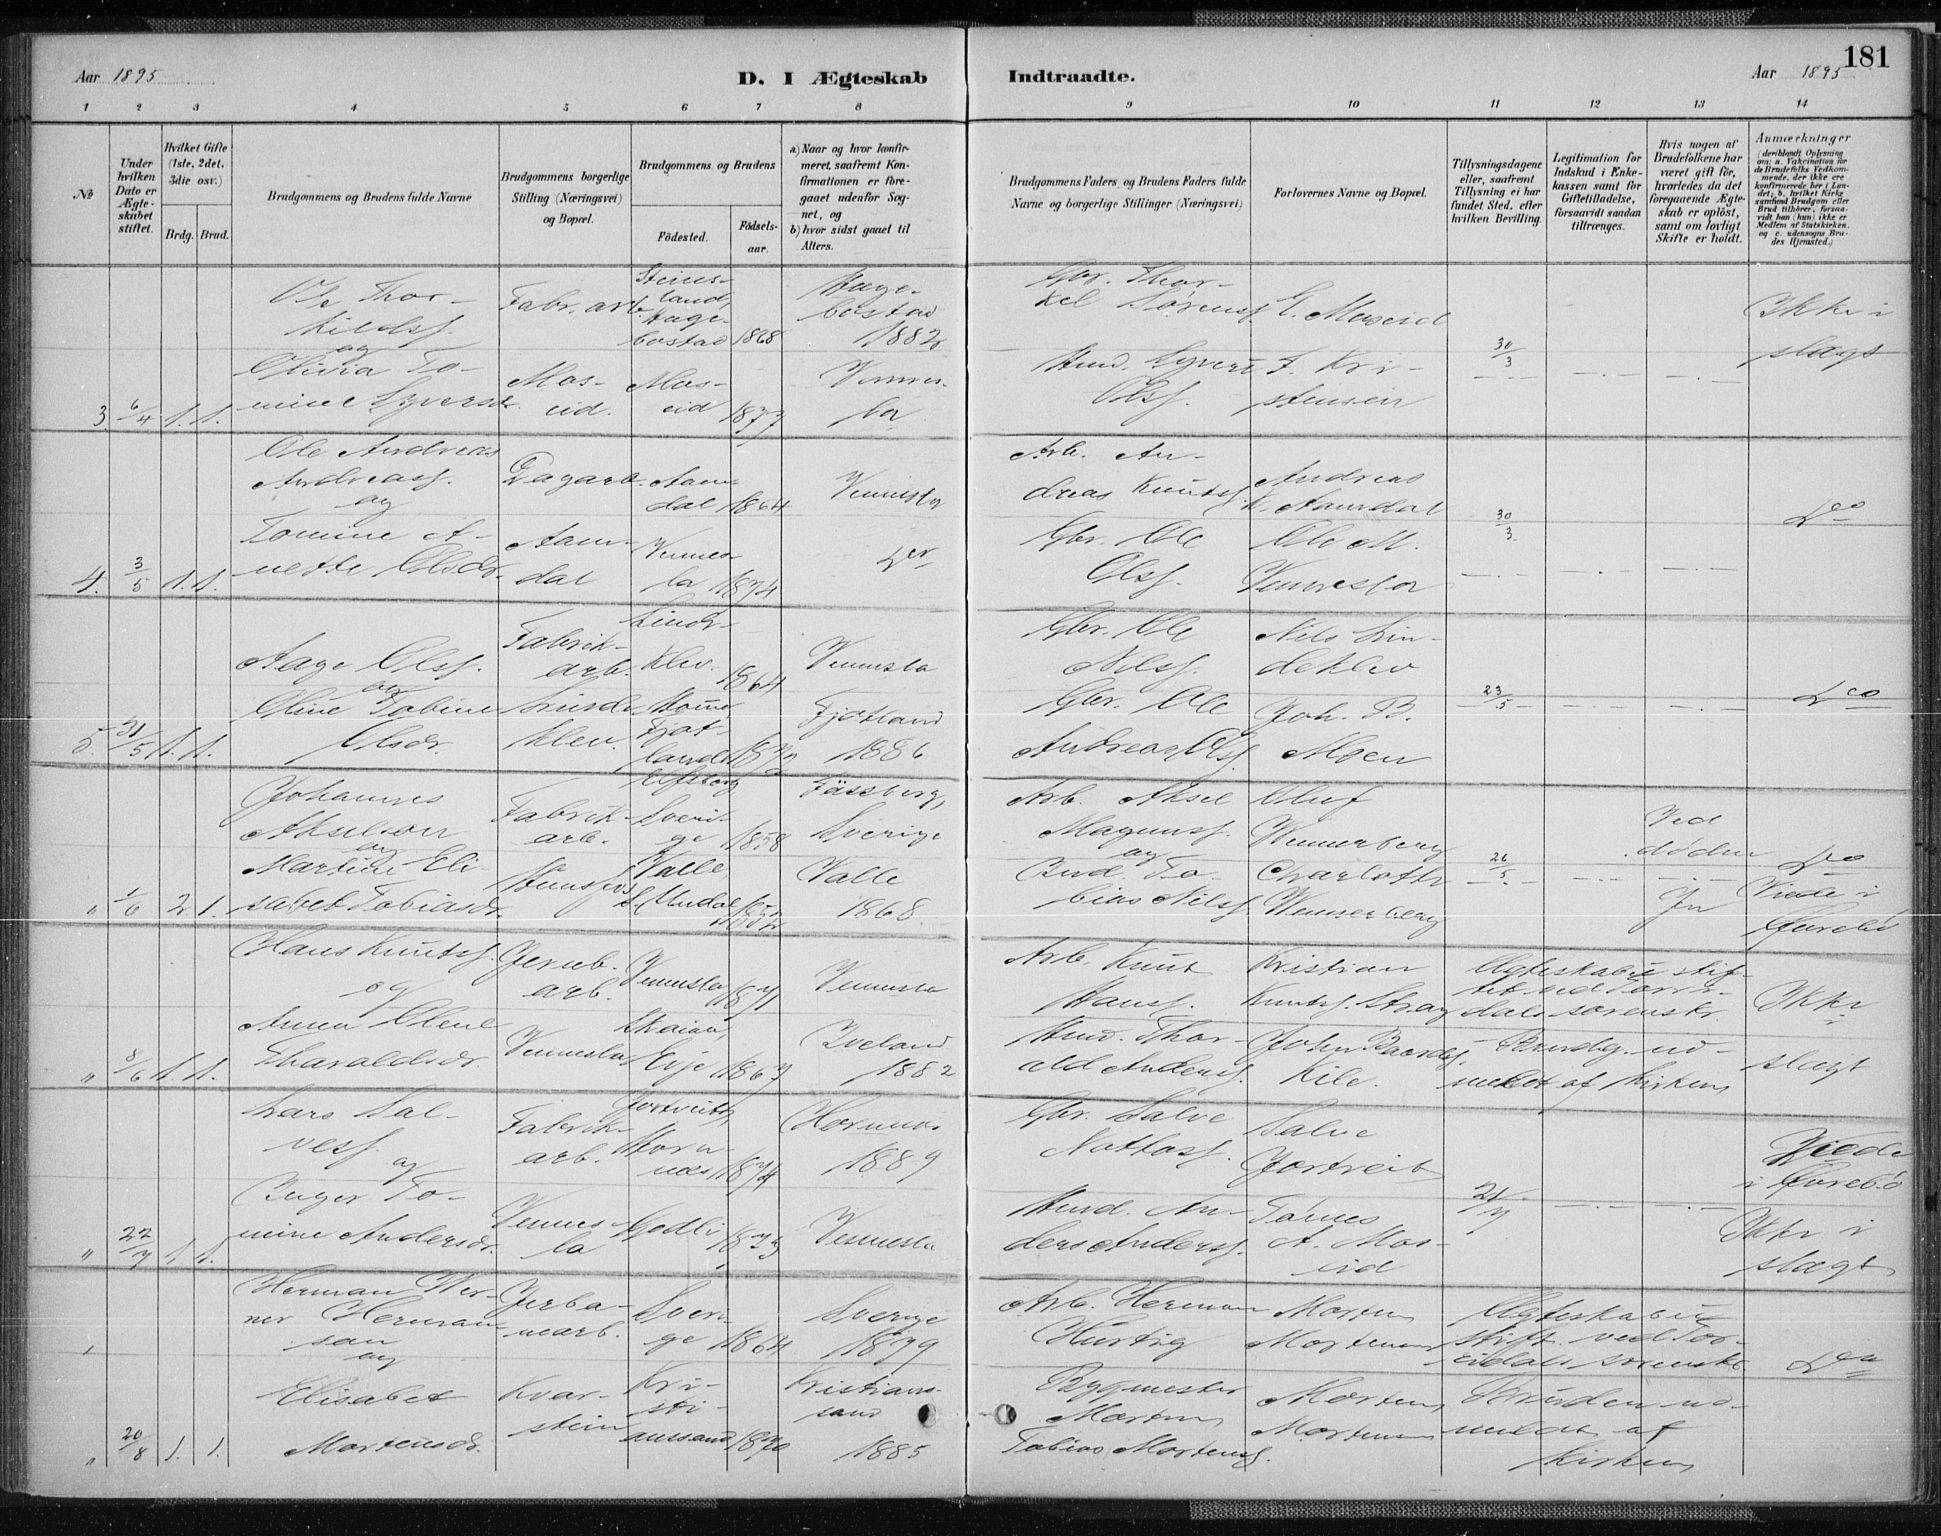 181
Aar 1895
D. I Ægteskab
Indtraadte.
Aar 1895
1 2 3 4 5 6 7 8
9 10 11 12 13 14
No
Under hvilken Dato er Ægteskabet stiftet.
Hvilket Gifte (1ste, 2det, 3die osv.)
Brdg. Brud.
Brudgommens og Brudens fulde Navne
Brudgommens borgerlige Stilling (Næringsvei) og Bopæl.
Brudgommens og Brudens
Fødested.
Fødselsaar.
a) Naar og hvor konfirmeret, saafremt Konfirmationen er foregaaet udenfor Sognet, og
b) hvor sidst gaaet til Alters.
Brudgommens Faders og Brudens Faders fulde Navne og borgerlige Stillinger (Næringsvei)
Forlovernes Navne og Bopæl.
Tillysningsdagene eller, saafremt Tillysning ei har fundet Sted, efter hvilken Bevilling.
Legitimation for Indskud i Enkekassen samt for Giftetilladelse, forsaavidt saadan tiltrænges.
Hvis nogen af Brudefolkene har været gift før, hvorledes da det foregaaende Ægteskab er opløst, samt om lovligt Skifte er holdt.
Anmærkninger
(deriblandt Oplysning om: a. Vakcination for de Brudefolks Vedkommende, der ikke ere konfirmerede her i Landet; b. hvilket Kirkesamfund Brudgom eller Brud tilhører, forsaavidt han (hun) ikke er Medlem af Statskirken, og c. udensogns Brudes Hjemsted.)
3 6/4 1. 1.
Ole Thorkildsf.
og
Olivia Tomine Syversdr.
Fabr. arb.
Moseid.
Steinsland, Hægebostad 1868
Moseid 1877
Hægebostad 1882
Vennesla
Gbr. Thorkel Sørensf.
Hmd. Syvert Olsf.
S. Moseid
F. Kristensen
30/3
Ikke i slægt
4. 3/5 1. 1.
Ole Andreas Andreasf.
og
Tomine Anette Olsdr.
Dagarb.
Aamdal
Aamdal 1864
Vennesla 1874
Vennesla
Do
Arb. Andreas Knutsf.
Gbr. Ole Olsf.
Andreas K. Aamdal
Ole M. Vennesla
30/3
Do
5. 31/5 1. 1.
Aage Olsf.
og
Oline Tobine Olsdr.
Fabrikarb.
Lindeklev.
Lindeklev. 1864
Fjotland
Vennesla
Fjotland 1886
Gbr. Ole Nilsf.
Gbr. Ole Andreas Olsf.
Nils Lindeklev
Joh. B. Moen
23/5
Do
" 1/6 2. 1.
Johannes Akselson
og
Martine Elisabet Tobiasdr.
Fabrikarb.
Hunsfos
Elfsborg Sverige 1858
Valle S. Undal 1852
Fässberg, Sverige
Valle 1868
Arb. Aksel Magnusf.
og
Tobias Nilsf.
Oluf Wennerberg
Charlotte Wennerberg
26/5
Ved døden
Do
Viede i Øvrebø
" 8/6 1. 1.
Hans Knutsf.
og
Anna Olene Tharaldsdr.
Jernb. arb.
Vennesla
Vennesla 1871
Eije 1867
Vennesla
Iveland 1882
Arb. Knut Hansf.
Hmd. Tharald Andersf.
Kristian Knutsf. Stray
John Baardsf. Kile.
Ægteskabet stiftet ved Torridals sorenskr.
Brudg. udmeldt af kirken
Ikke i slægt
" 22/7 1. 1.
Lars Salvesf.
og
Inger Tomine Andersdr.
Fabrikarb.
Vennesla
Jortveit, Hornnes 1874
Godli
Hornnes 1889
Vennesla
Gbr. Salve
Hmd. Anders Andersf.
Salve Jortveit
Tønnes A. Moseid
21/7
Viede i Øvrebø
Ikke i slægt
" 20/8 1. 1.
Herman Werner Hermanson
og
Elisabet Mortensdr.
Jerbanearb.
Kvarstein
Sverige 1864
Kristianssand 1870
Sverige 1879
Kristianssand 1885
Arb. Herman Hurtig
Bygmester Morten Tobias Mortensf.
Morten Mortensen
Morten Mortensen
Ægteskabet stift. ved Torridals sorenskr.
Bruden udmeldt af kirken
Do